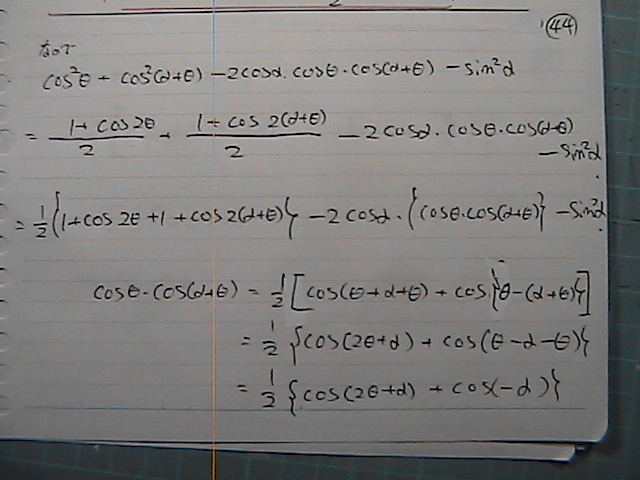 44
なので
cos²θ + cos²(α+θ) - 2cosα·cosθ·cos(α+θ) - sin²α
= (1+cos2θ)/2 + (1+cos2(α+θ))/2 - 2cosα·cosθ·cos(α+θ) - sin²α
= 1/2{1+cos2θ+1+cos2(α+θ)} - 2cosα·{cosθ·cos(α+θ)} - sin²α
cosθ·cos(α+θ) = 1/2[cos(θ+α+θ) + cos{θ-(α+θ)}]
= 1/2{cos(2θ+α) + cos(θ-α-θ)}
= 1/2{cos(2θ+α) + cos(-α)}